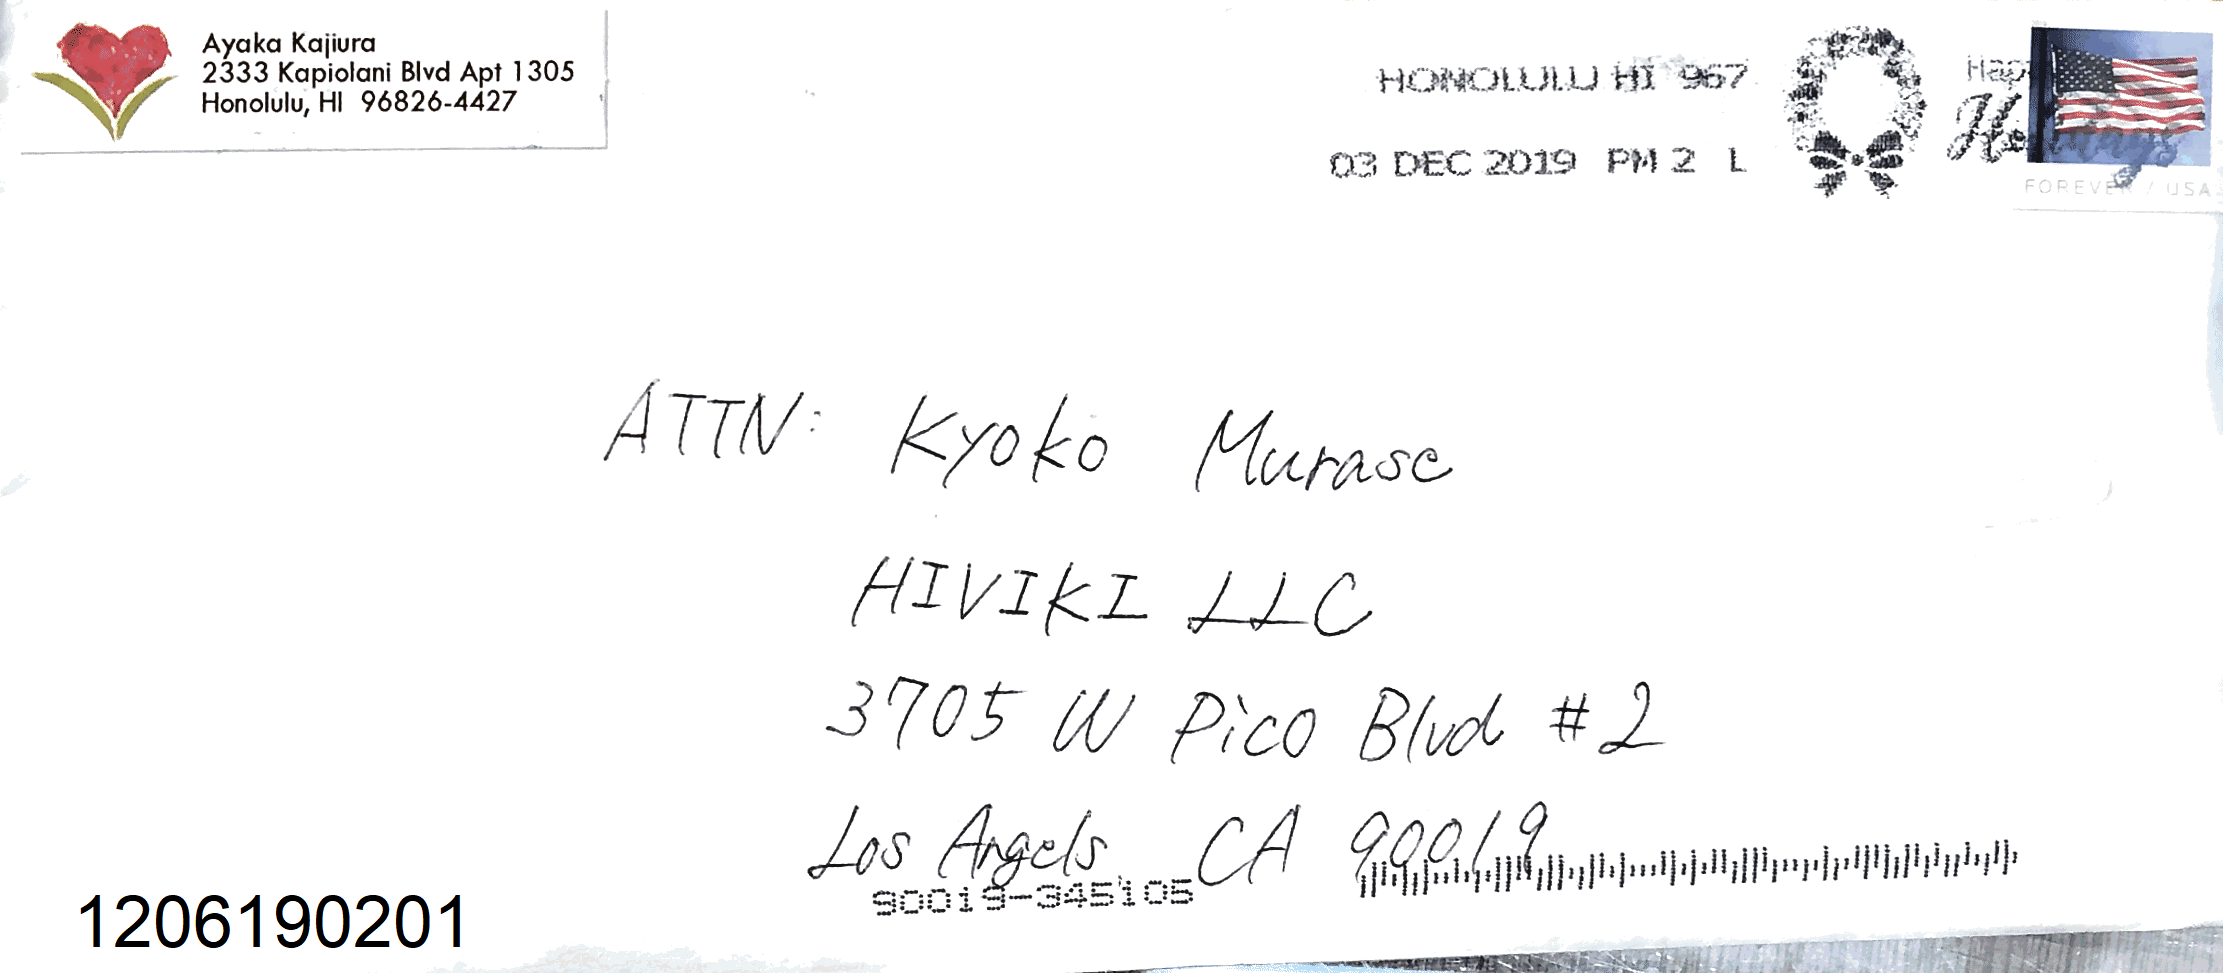 Ayaka Kajiura
2333 Kapiolani Blvd Apt 1305
Honolulu, HI 96826-4427
HONOLULU HI 967
03 DEC 2019 PM 2 L
FOREVER / USA
ATTN: Kyoko Murase
HIVIKI LLC
3705 W Pico Blvd #2
Los Angels, CA 90019
90019-345105
1206190201